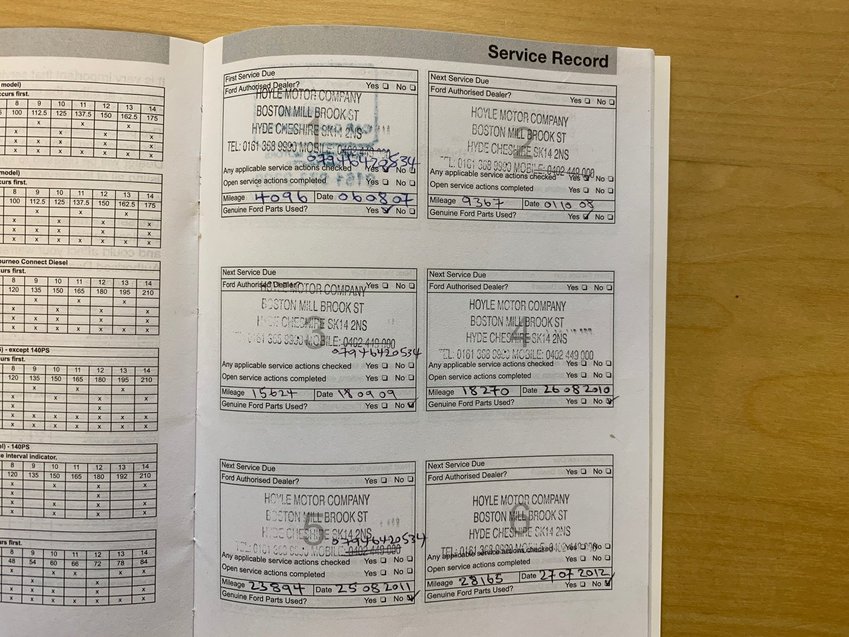 Service Record
model)
ccurs first.
8 9 10 11 12 13 14
100 112.5 125 137.5 150 162.5 175
x
x x x
x x
x x x x x x x
x x x x x x x
model)
urs first.
8 9 10 11 12 13 14
100 112.5 125 137.5 150 162.5 175
ourneo Connect Diesel
urs first.
8 9 10 11 12 13 14
120 135 150 165 180 195 210
- except 140PS
rs first.
8 9 10 11 12 13 14
120 135 150 165 180 195 210
- 140PS
e interval indicator.
8 9 10 11 12 13 14
120 135 150 165 180 192 210
rs first.
8 9 10 11 12 13 14
48 54 60 66 72 78 84
First Service Due
Ford Authorised Dealer? Yes No
HOYLE MOTOR COMPANY
BOSTON MILL BROOK ST
HYDE CHESHIRE SK14 2NS
TEL: 0161 368 9900 MOBILE
07946420534
Any applicable service actions checked Yes No
Open service actions completed Yes No
Mileage 4096 Date 060807
Genuine Ford Parts Used? Yes No
Next Service Due
Ford Authorised Dealer? Yes No
HOYLE MOTOR COMPANY
BOSTON MILL BROOK ST
HYDE CHESHIRE SK14 2NS
TEL: 0161 368 9900 MOBILE: 0402 449 000
Any applicable service actions checked Yes No
Open service actions completed Yes No
Mileage 9367 Date 011008
Genuine Ford Parts Used? Yes No
Next Service Due
Ford Authorised Dealer? Yes No
HOYLE MOTOR COMPANY
BOSTON MILL BROOK ST
3
HYDE CHESHIRE SK14 2NS
TEL: 0161 368 9900 MOBILE: 0402 449 000
07946420534
Any applicable service actions checked Yes No
Open service actions completed Yes No
Mileage 15624 Date 180909
Genuine Ford Parts Used? Yes No
Next Service Due
Ford Authorised Dealer? Yes No
HOYLE MOTOR COMPANY
BOSTON MILL BROOK ST
4
HYDE CHESHIRE SK14 2NS
TEL: 0161 368 9900 MOBILE: 0402 449 000
Any applicable service actions checked Yes No
Open service actions completed Yes No
Mileage 18270 Date 26082010
Genuine Ford Parts Used? Yes No
Next Service Due
Ford Authorised Dealer? Yes No
HOYLE MOTOR COMPANY
BOSTON MILL BROOK ST
5
HYDE CHESHIRE SK14 2NS
07946420534
TEL: 0161 368 9900 MOBILE: 0402 449 000
Any applicable service actions checked Yes No
Open service actions completed Yes No
Mileage 23894 Date 25082011
Genuine Ford Parts Used? Yes No
Next Service Due
Ford Authorised Dealer? Yes No
HOYLE MOTOR COMPANY
BOSTON MILL BROOK ST
6
HYDE CHESHIRE SK14 2NS
TEL: 0161 368 9900 MOBILE: 0402 449 000
Any applicable service actions checked Yes No
Open service actions completed Yes No
Mileage 28165 Date 27072012
Genuine Ford Parts Used? Yes No